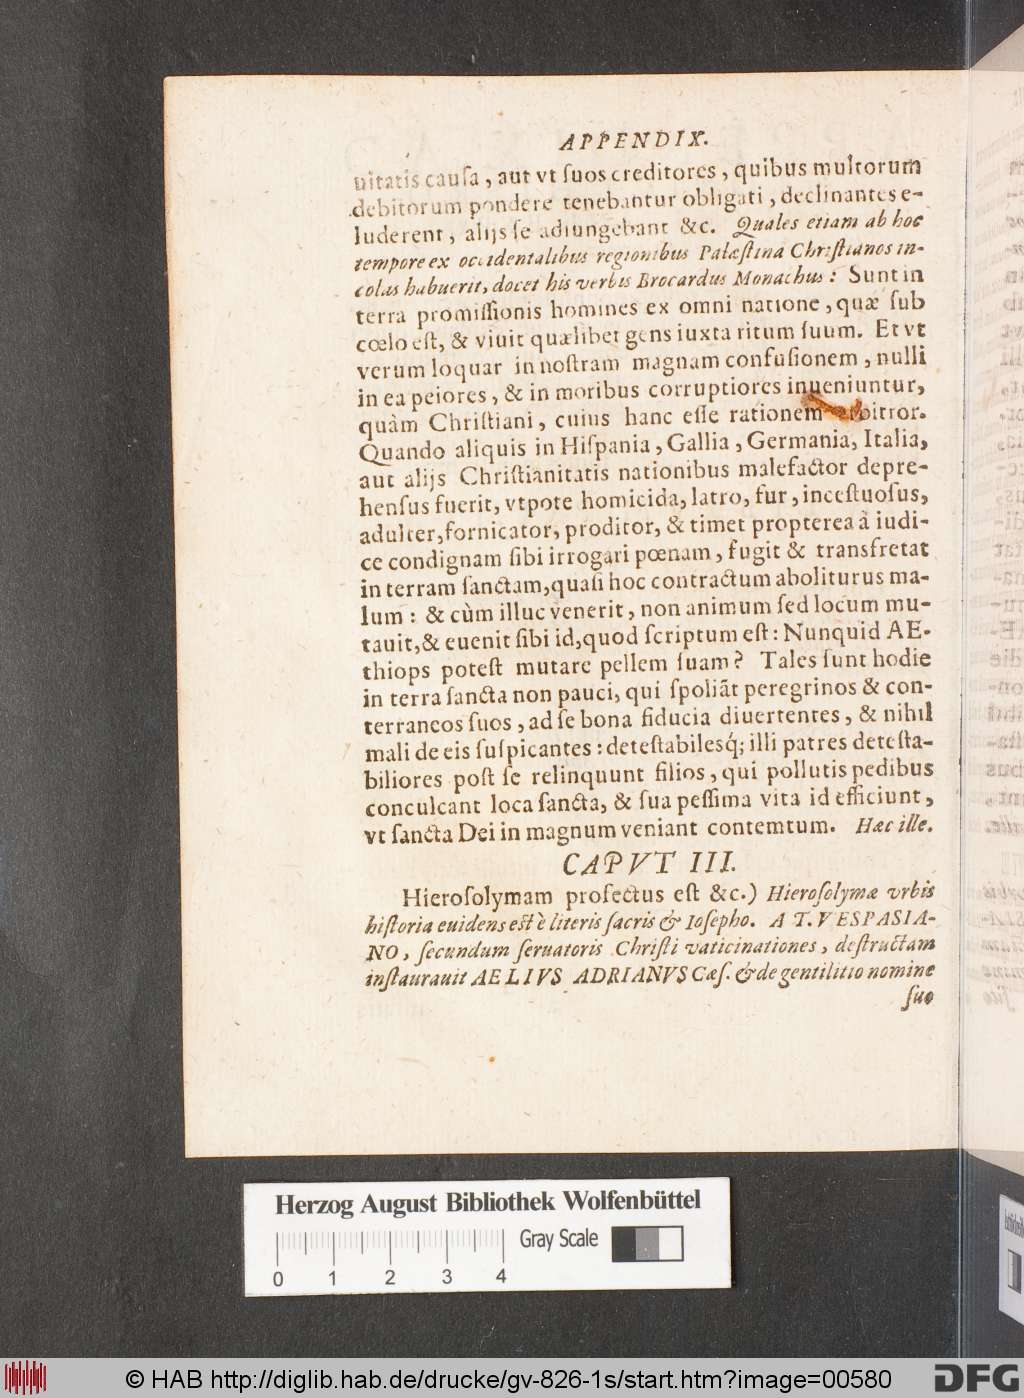 APPENDIX.
uitatis cauſa, aut vt ſuos creditores, quibus multorum
debitorum pondere tenebantur obligati, declinantes e-
luderent, alijs ſe adiungebant &c. Quales etiam ab hoc
tempore ex occidentalibus regionibus Palæſtina Chriſtianos in-
colas habuerit, docet his verbis Brocardus Monachus: Sunt in
terra promiſſionis homines ex omni natione, quæ ſub
cœlo eſt, & viuit quælibet gens iuxta ritum ſuum. Et vt
verum loquar in noſtram magnam confuſionem, nulli
in ea peiores, & in moribus corruptiores inueniuntur,
quàm Chriſtiani, cuius hanc eſſe rationem arbitror.
Quando aliquis in Hiſpania, Gallia, Germania, Italia,
aut alijs Chriſtianitatis nationibus malefactor depre-
henſus fuerit, vtpote homicida, latro, fur, inceſtuoſus,
adulter, fornicator, proditor, & timet propterea à iudi-
ce condignam ſibi irrogari pœnam, fugit & transfretat
in terram ſanctam, quaſi hoc contractum aboliturus ma-
lum: & cùm illuc venerit, non animum ſed locum mu-
tauit, & euenit ſibi id, quod ſcriptum eſt: Nunquid AE-
thiops poteſt mutare pellem ſuam? Tales ſunt hodie
in terra ſancta non pauci, qui ſpoliãt peregrinos & con-
terraneos ſuos, ad ſe bona fiducia diuertentes, & nihil
mali de eis ſuſpicantes: deteſtabilesq́; illi patres deteſta-
biliores poſt ſe relinquunt filios, qui pollutis pedibus
conculcant loca ſancta, & ſua peſſima vita id efficiunt,
vt ſancta Dei in magnum veniant contemtum. Hæc ille.
CAPVT III.
Hieroſolymam profectus eſt &c.) Hieroſolymæ vrbis
hiſtoria euidens est è literis ſacris & Ioſepho. A T. VESPASIA-
NO, ſecundum ſeruatoris Chriſti vaticinationes, deſtructam
inſtaurauit AELIVS ADRIANVS Cæſ. & de gentilitio nomine
ſuo
Herzog August Bibliothek Wolfenbüttel
Gray Scale
0 1 2 3 4
© HAB http://diglib.hab.de/drucke/gv-826-1s/start.htm?image=00580
DFG